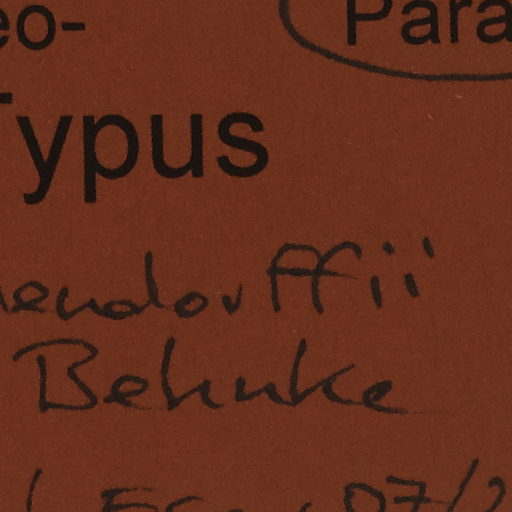 eo- Para
Typus
endorffii
Behnke
07/2